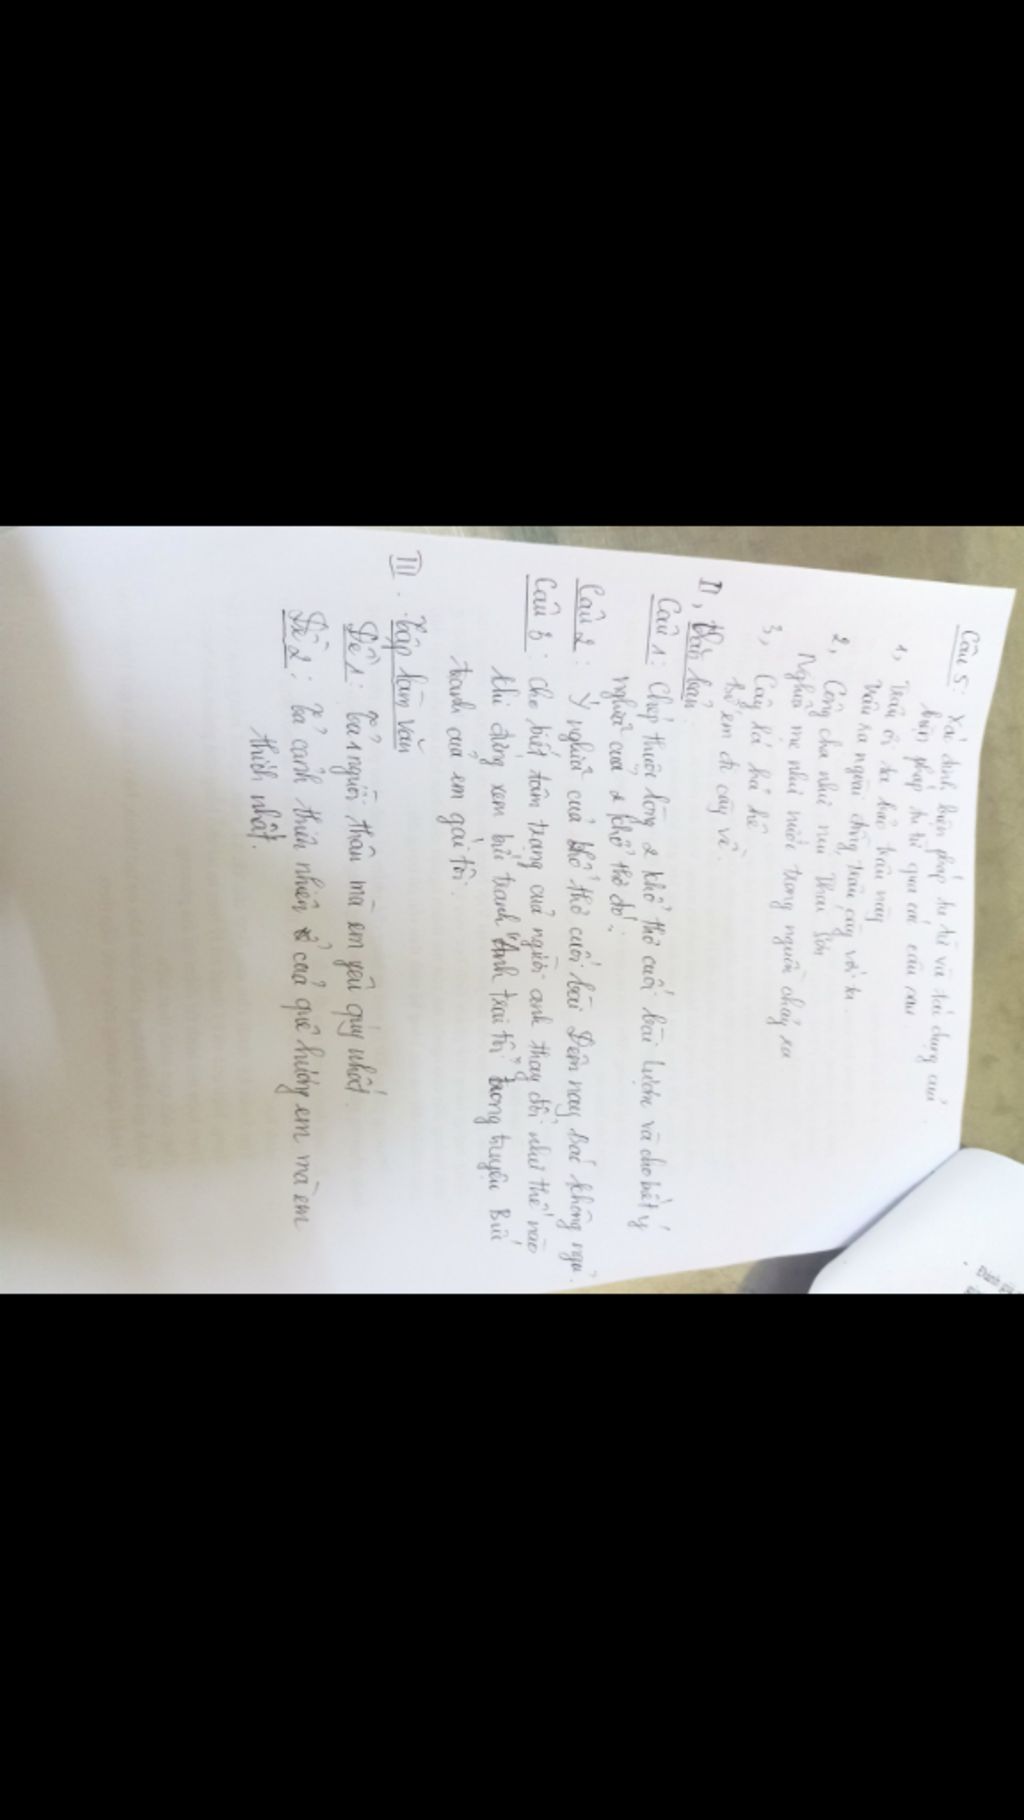 Câu 5: Xác định biện pháp tu từ và tác dụng của
biện pháp tu từ qua các câu sau
1, Trâu ơi ta bảo trâu này
Trâu ra ngoài đồng trâu cày với ta.
2, Công cha như núi Thái Sơn
Nghĩa mẹ như nước trong nguồn chảy ra
3, Cây lá hả hê
Bố em đi cày về.
II, Văn bản.
Câu 1: Chép thuộc lòng 2 khổ thơ cuối bài Lượm và cho biết ý
nghĩa của 2 khổ thơ đó.
Câu 2: Ý nghĩa của khổ thơ cuối bài Đêm nay Bác không ngủ.
Câu 3: cho biết tâm trạng của người anh thay đổi như thế nào
khi đứng xem bức tranh "Anh trai tôi" trong truyện Bức
tranh của em gái tôi.
III. Tập làm văn
Đề 1: Tả 1 người thân mà em yêu quý nhất.
Đề 2: Tả cảnh thiên nhiên của quê hương em mà em
thích nhất.